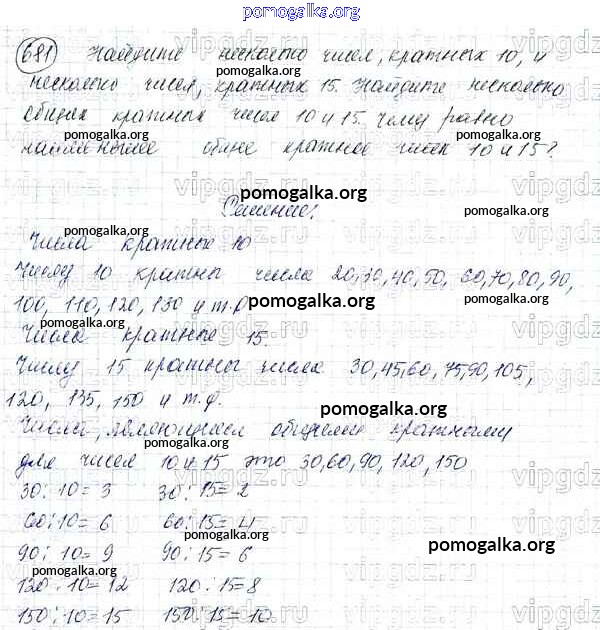 pomogalka.org
681 Найдите несколько чисел, кратных 10, и
несколько чисел, кратных 15. Найдите несколько
общих кратных чисел 10 и 15. Чему равно
наименьшее общее кратное чисел 10 и 15?
Решение:
Числа кратные 10
Числу 10 кратны числа 20, 30, 40, 50, 60, 70, 80, 90,
100, 110, 120, 130 и т.д.
Числа кратные 15
Числу 15 кратны числа 30, 45, 60, 75, 90, 105,
120, 135, 150 и т.д.
Числа, являющиеся общими кратными
для чисел 10 и 15 это 30, 60, 90, 120, 150
30:10=3 30:15=2
60:10=6 60:15=4
90:10=9 90:15=6
120:10=12 120:15=8
150:10=15 150:15=10
pomogalka.org
pomogalka.org
pomogalka.org
pomogalka.org
pomogalka.org
pomogalka.org
pomogalka.org
pomogalka.org
pomogalka.org
pomogalka.org
pomogalka.org
pomogalka.org
pomogalka.org